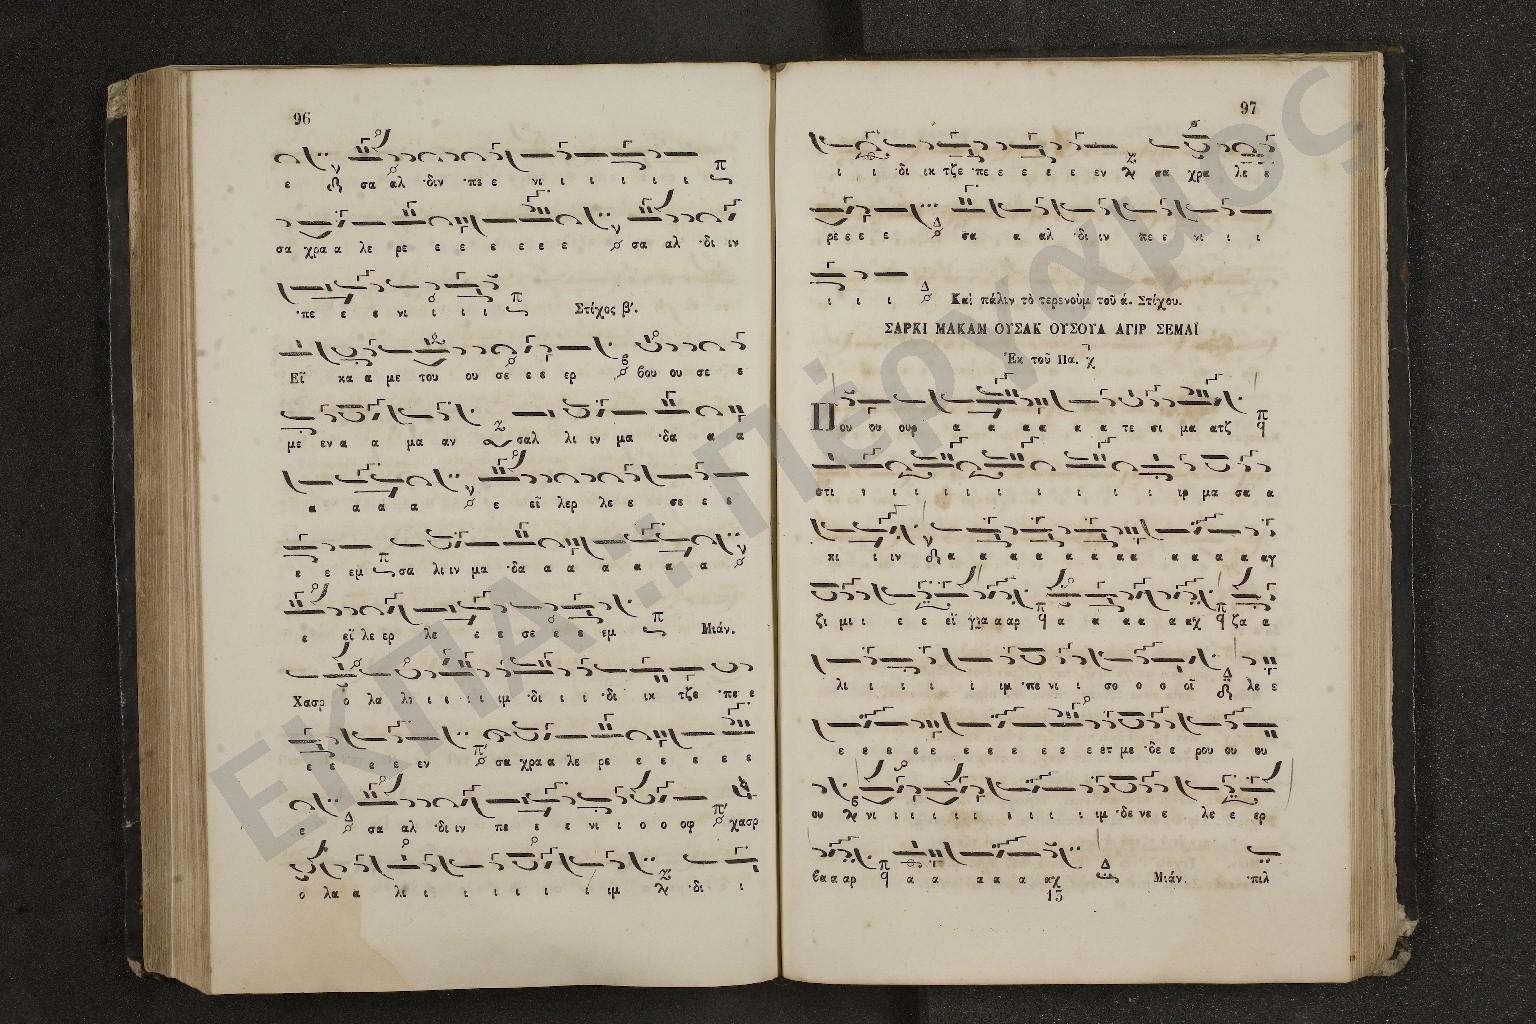 96
ε σα αλ ·διν ·πε ε νι ι ι ι ι ι
σα χρα α λε ρε ε ε ε ε ε ε σα αλ ·δι ιν
·πε ε ε νι ι ι ι Στίχος β'.
Εϊ κα α με του ου σε ε ε ερ βου ου σε ε
με εν α α μα αν σαλ λι ιν μα ·δα α α
α α α α ε εϊ λερ λε ε σε ε ε
ε ε εμ σα λι ιν μα ·δα α α α α α α
ε εϊ λε ερ λε ε ε σε ε ε εμ Μιάν.
Χασρ ὁ λα λι ι ι ι ιμ ·δι ι ι ·δι ικ τζε ·πε ε
ε ε ε ε εν σα χρα α λε ρε ε ε ε ε ε
ε σα αλ ·δι ιν πε ε ε νι ι ο ο οφ χασρ
ο λα α λι ι ι ι ι ι ι ιμ ·δι ι
97
ι ι ·δι ικ τζε ·πε ε ε ε ε εν σα χρα λε ε
ρε ε ε ε σα α αλ ·δι ιν πε ε νι ι ι
ι ι ι Καὶ πάλιν τὸ τερενοὺμ τοῦ ά. Στίχου.
ΣΑΡΚΙ ΜΑΚΑΜ ΟΥΣΑΚ ΟΥΣΟΥΛ ΑΓΙΡ ΣΕΜΑΪ
Ἐκ τοῦ Πα.
Που ου ουρ α α α α α τε σι μα ατζ
στι ι ι ι ι ι ι ι ι ι ι ιρ μα σα α
κι ι ιν α α α α α α α α α α α α αγ
ζι μι ι ε ε εϊ για α αρ α α α α αχ ζα α
λι ι ι ι ι ιμ ·πε νι ι σο ο ο οϊ λε ε
ε ε ε ε ε ε ε ε ε ε ετ με ·δε ε ρου ου ου
ου νι ι ι ι ι ι ι ι ιμ ·δε νε ε λε ε ερ
βα α αρ α α α α α αχ Μιάν. ·πιλ
13